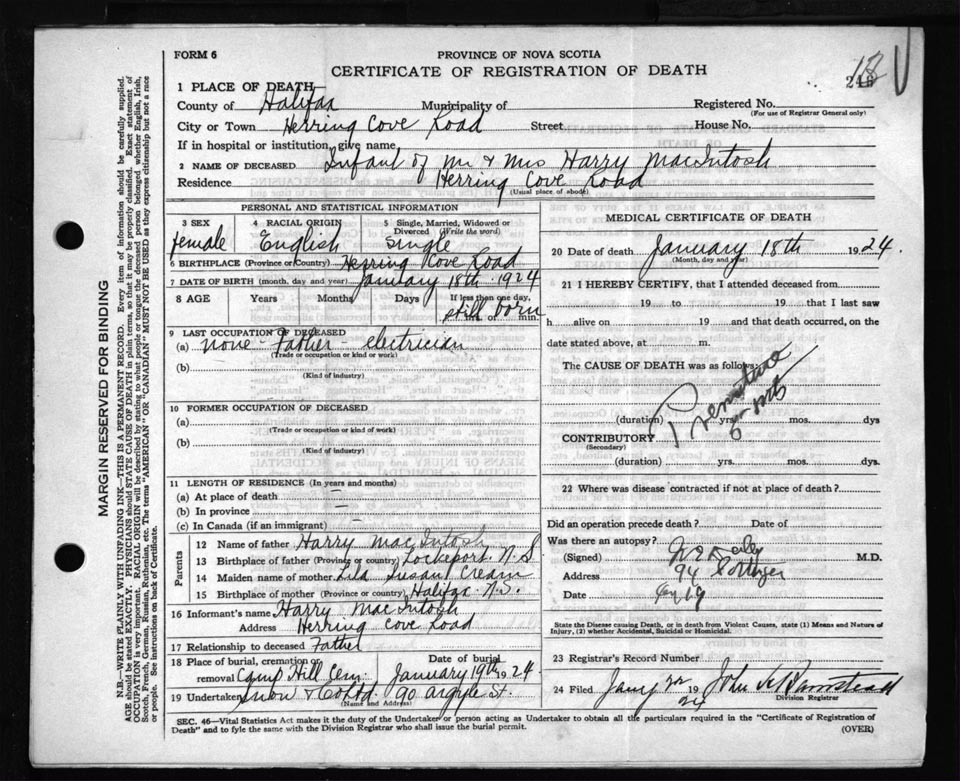 FORM 6
PROVINCE OF NOVA SCOTIA
CERTIFICATE OF REGISTRATION OF DEATH
18
1 PLACE OF DEATH
County of Halifax Municipality of Registered No.
(For use of Registrar General only)
City or Town Herring Cove Road Street House No.
If in hospital or institution, give name
2 NAME OF DECEASED Infant of Mr & Mrs Harry MacIntosh
Residence Herring Cove Road
(Usual place of abode)
PERSONAL AND STATISTICAL INFORMATION
3 SEX 4 RACIAL ORIGIN 5 Single, Married, Widowed or Divorced (Write the word)
female English Single
6 BIRTHPLACE (Province or Country) Herring Cove Road
7 DATE OF BIRTH (month, day and year) January 18th 1924
8 AGE Years Months Days If less than one day,
still born
hrs. or min.
9 LAST OCCUPATION OF DECEASED
(a) none - Father - electrician
(Trade or occupation or kind or work)
(b)
(Kind of industry)
10 FORMER OCCUPATION OF DECEASED
(a)
(Trade or occupation or kind of work)
(b)
(Kind of industry)
11 LENGTH OF RESIDENCE (In years and months)
(a) At place of death —
(b) In province —
(c) In Canada (if an immigrant) —
Parents
12 Name of father Harry MacIntosh
13 Birthplace of father (Province or country) Lockeport N.S
14 Maiden name of mother Lila Susan Cream
15 Birthplace of mother (Province or country) Halifax N.S.
16 Informant's name Harry MacIntosh
Address Herring Cove Road
17 Relationship to deceased Father
18 Place of burial, cremation or removal Camp Hill Cem. Date of burial January 19th 1924
19 Undertaker Snow & Co Ltd. 90 Argyle St.
(Name and Address)
MEDICAL CERTIFICATE OF DEATH
20 Date of death January 18th 1924.
(Month, day and year)
21 I HEREBY CERTIFY, that I attended deceased from
19 to 19 that I last saw
h alive on 19 and that death occurred, on
date stated above, at m.
The CAUSE OF DEATH was as follows:
Premature
6 mts
(duration) yrs. mos. dys
CONTRIBUTORY
(Secondary)
(duration) yrs. mos. dys.
22 Where was disease contracted if not at place of death?
Did an operation precede death? Date of
Was there an autopsy?
(Signed) M.D.
Address 94
Date 19
State the Disease causing Death, or in death from Violent Causes, state (1) Means and Nature of Injury, (2) whether Accidental, Suicidal or Homicidal.
23 Registrar's Record Number
24 Filed 19 24 John
Division Registrar
SEC. 46—Vital Statistics Act makes it the duty of the Undertaker or person acting as Undertaker to obtain all the particulars required in the "Certificate of Registration of
Death" and to fyle the same with the Division Registrar who shall issue the burial permit. (OVER)
MARGIN RESERVED FOR BINDING
N.B.—WRITE PLAINLY WITH UNFADING INK—THIS IS A PERMANENT RECORD. Every item of information should be carefully supplied.
AGE should be stated EXACTLY. PHYSICIANS should STATE CAUSE OF DEATH in plain terms, so that it may be properly classified. Exact statement of
OCCUPATION is very important. RACIAL ORIGIN will be described by stating to what people or tongue the deceased person belonged whether English, Irish,
Scotch, French, German, Russian, Ruthenian, etc. The terms "AMERICAN" OR "CANADIAN" MUST NOT BE USED as they express citizenship but not a race
or people. See instructions on back of Certificate.